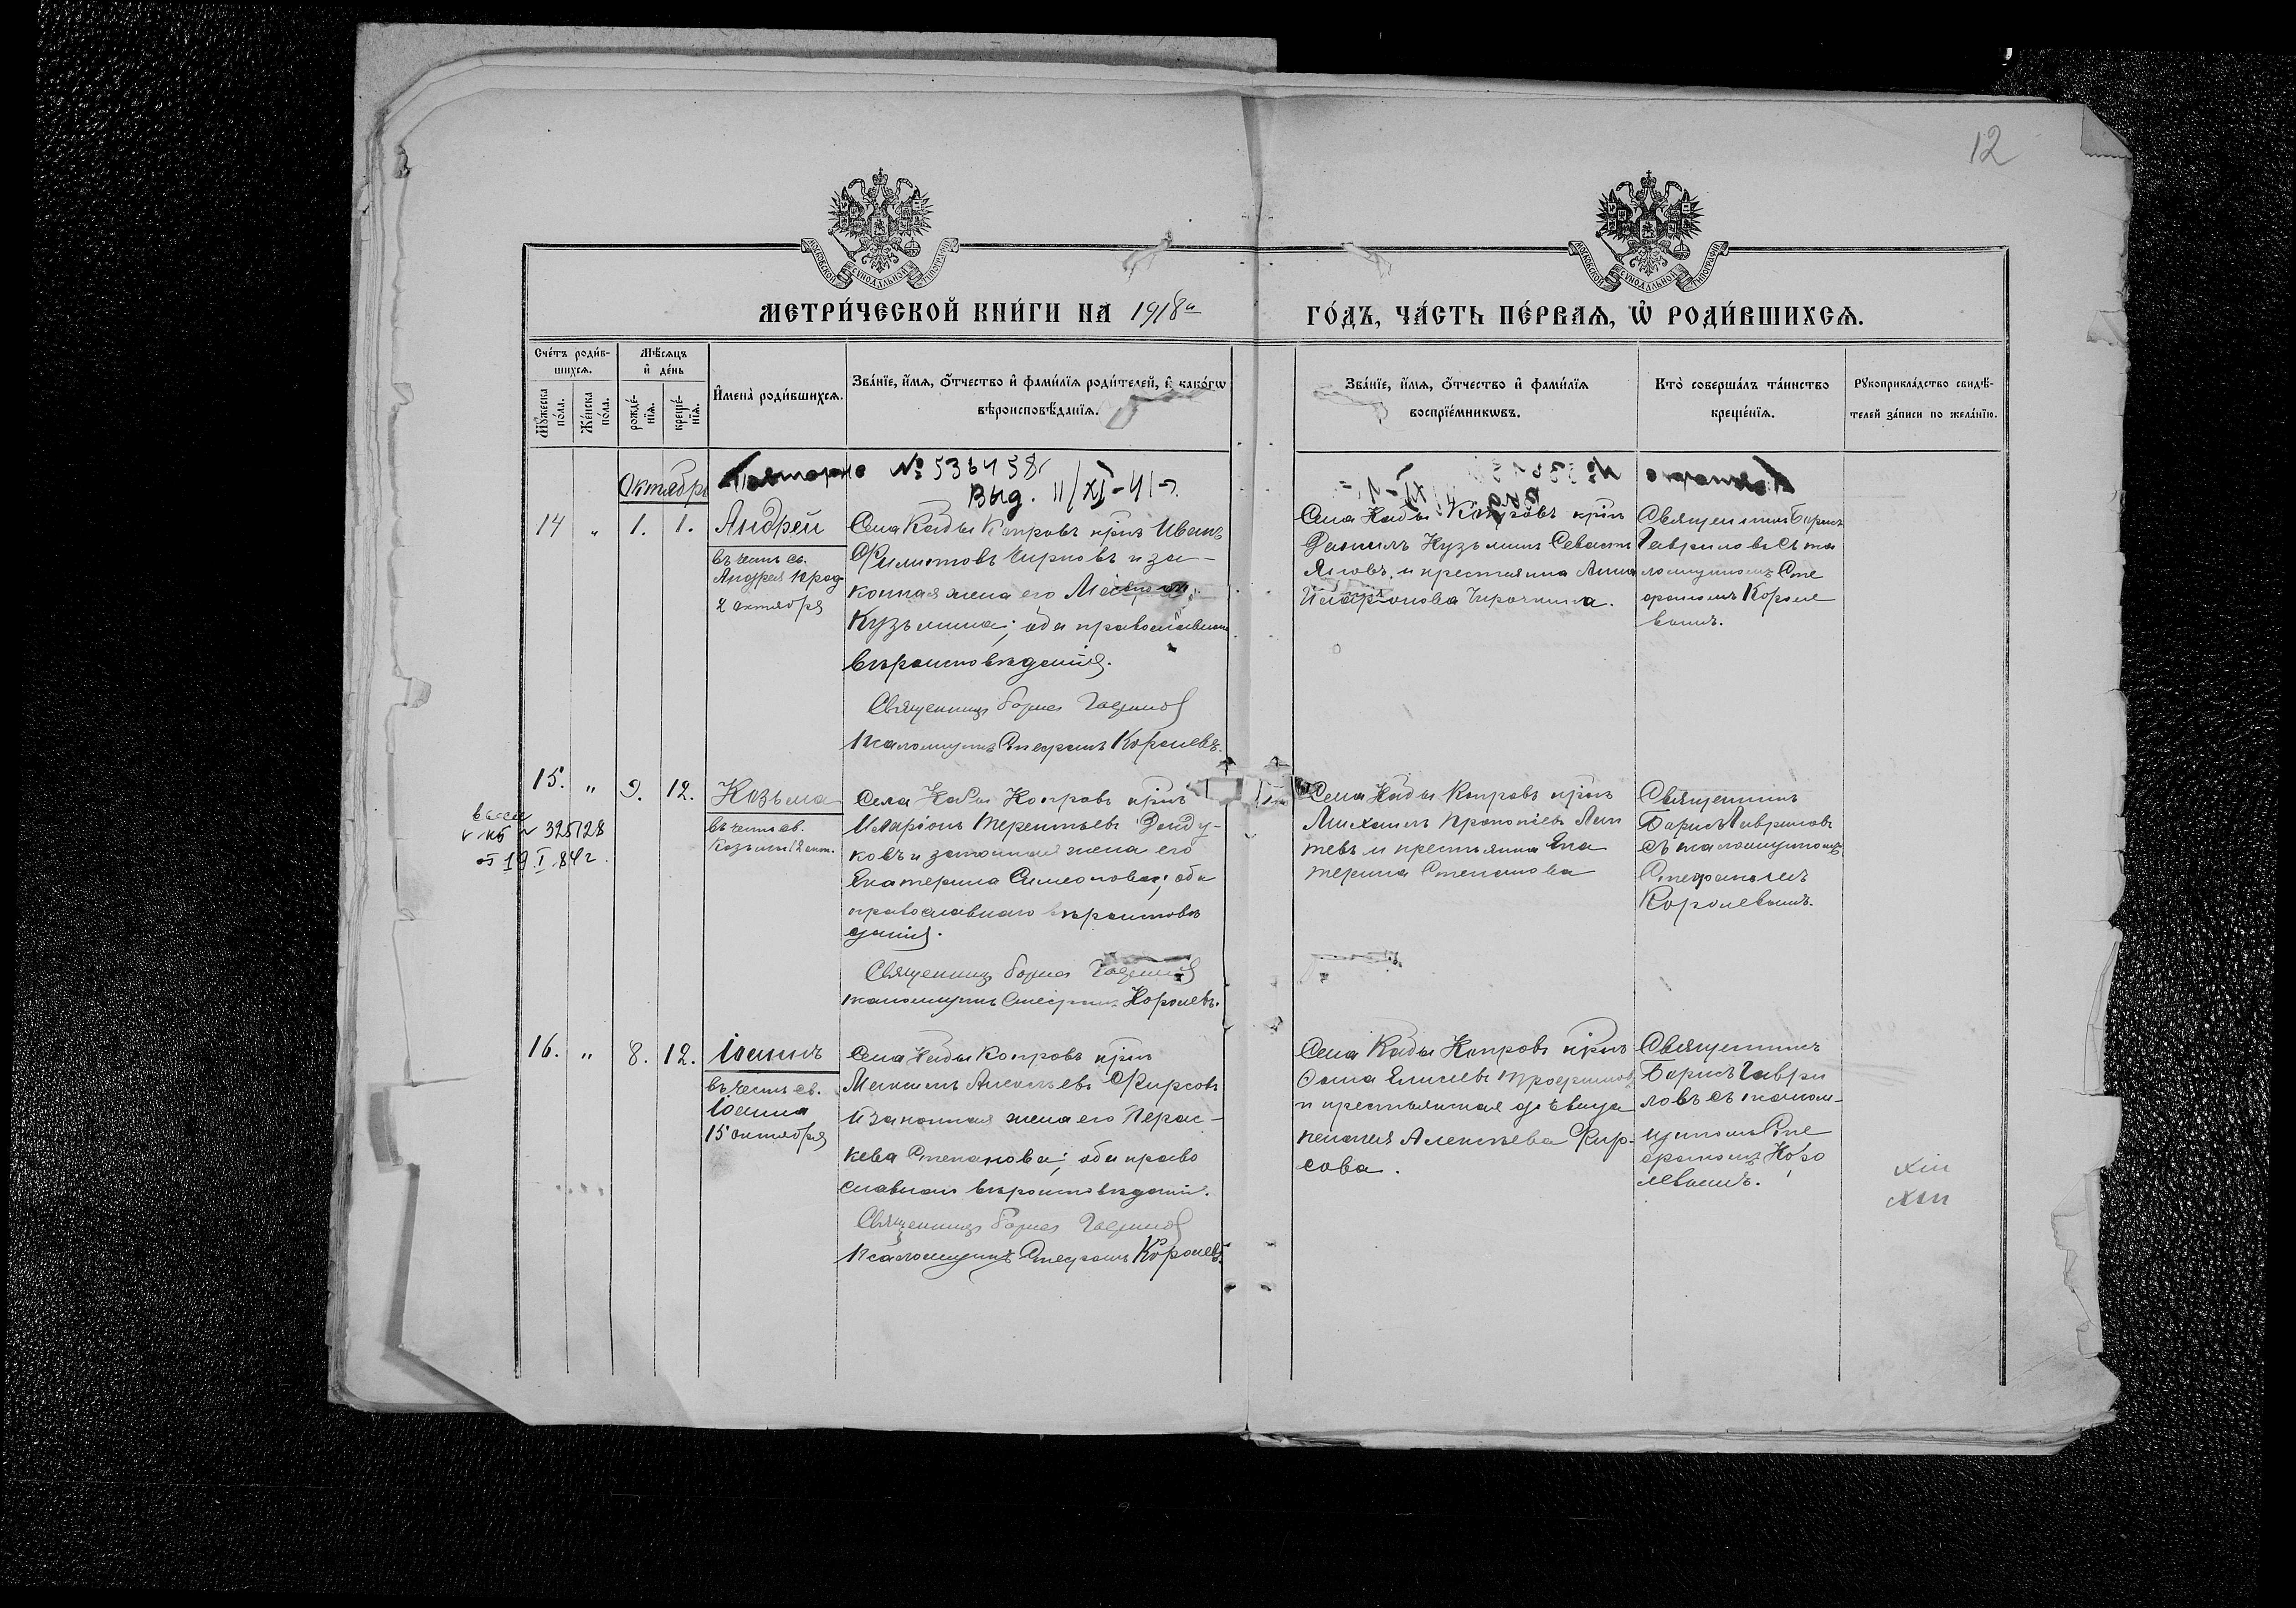 12
МОСКОВСКОЙ СѴНОДАЛЬНОЙ ТИПОГРАФІИ
МОСКОВСКОЙ СѴНОДАЛЬНОЙ ТИПОГРАФІИ
МЕТРИ́ЧЕСКОЙ КНИ́ГИ НА 1918й
ГО́ДЪ, ЧА́СТЬ ПЕ́РВАѦ, Ѡ҆ РОДИ́ВШИХСѦ.
Сче́тъ роди́в-
шихсѧ.
Мѣ́сѧцъ
и҆ де́нь
Мꙋ́жеска
по́ла.
Же́нска
по́ла.
рожде́-
нїѧ.
креще́-
нїѧ.
И҆мена̀ роди́вшихсѧ.
Зва́нїе, и҆́мѧ, ѻ҆́тчество и҆ фами́лїѧ роди́телей, и҆ како́гѡ
вѣроисповѣ́данїѧ.
Зва́нїе, и҆́мѧ, ѻ҆́тчество и҆ фами́лїѧ
воспрїе́мникѡвъ.
Кто̀ соверша́лъ та́инство
креще́нїѧ.
Рꙋкоприкла́дство свидѣ́-
телей за́писи по жела́нїю.
Октябрь
Повторно № 536458
Выд. 11/XI-41 г.
14 " 1. 1. Андрей
въ честь св.
Андрея Крод
2 октября
Села Кады Копровъ крнъ Иванъ
Филиповъ Чирковъ и за-
конная жена его
Кузьмина; оба православнаго
вѣроисповѣданія.
Священникъ Борисъ Гавриловъ
Псаломщикъ Стефанъ Королевъ.
Села Кады Копровъ крнъ
Даниилъ Кузьминъ Севасть
яновъ, и крестьянка Анна
Иларіонова Чирочкина.
Священникъ Борисъ
Гавриловъ съ пса
ломщикомъ Сте
фаномъ Короле
вымъ.
15. " 9. 12. Козьма
въ честь св.
Козьмы 12 окт.
№ 325128
от 19 I 84 г.
Села Кады Копровъ крнъ
Иларіонъ Терентьевъ Донду-
ковъ и законная жена его
Екатерина Симеонова; оба
православнаго вѣроисповѣ
данія.
Священникъ Борисъ Гавриловъ
псаломщикъ Стефанъ Королевъ.
Села Кады Копровъ крнъ
Михаилъ Прокопіевъ Лап
тевъ и крестьянка Ека
терина Степанова
Священникъ
Борисъ Гавриловъ
съ псаломщикомъ
Стефаномъ
Королевымъ.
16. " 8. 12. Іоаннъ
въ честь св.
Іоанна
15 октября
Села Кады Копровъ крнъ
Максимъ Алексѣевъ Фирсовъ
и законная жена его Парас-
кева Степанова; оба право
славнаго вѣроисповѣданія.
Священникъ Борисъ Гавриловъ
Псаломщикъ Стефанъ Королевъ.
Села Кады Копровъ крнъ
Ѳома Елисеевъ Трофимовъ
и крестьянская дѣвица
Пелагея Алексѣева Фир-
сова.
Священникъ
Борисъ Гаври
ловъ съ псалом-
щикомъ Сте
фаномъ Коро
левымъ.